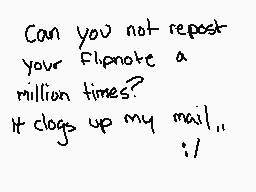 Can you not repost
your flipnote a
million times?
It clogs up my mail,,
:/